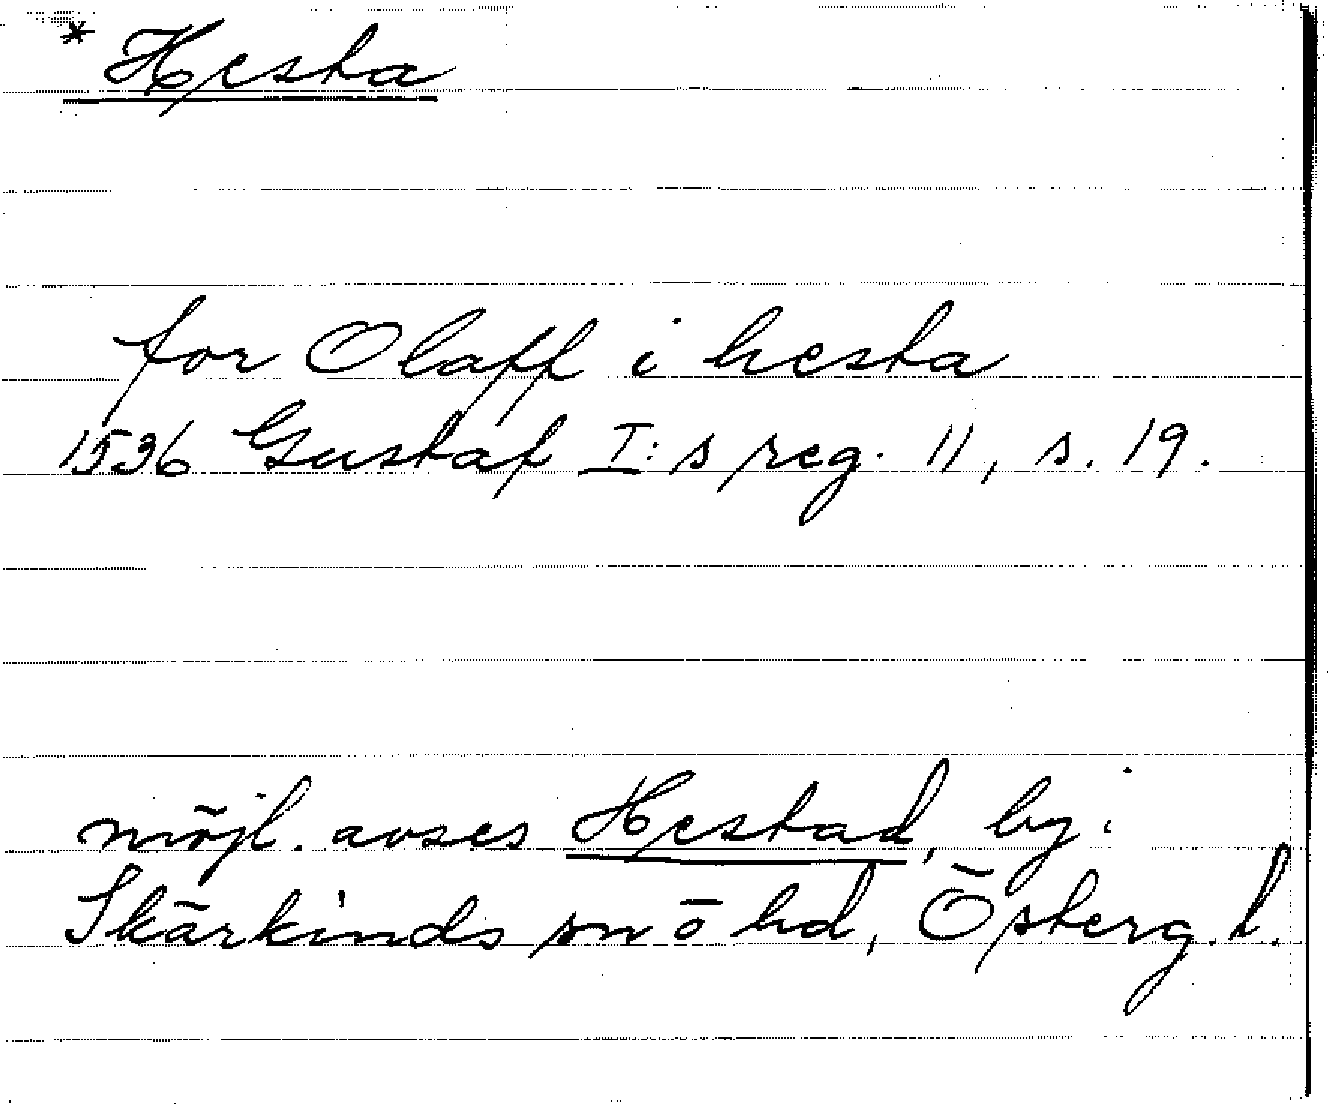 * Hesta
for Olaff i hesta
1536 Gustaf I:s reg. 11, s. 19.
möjl. avses Hestad, by i
Skärkinds sn ö hd, Österg. l.